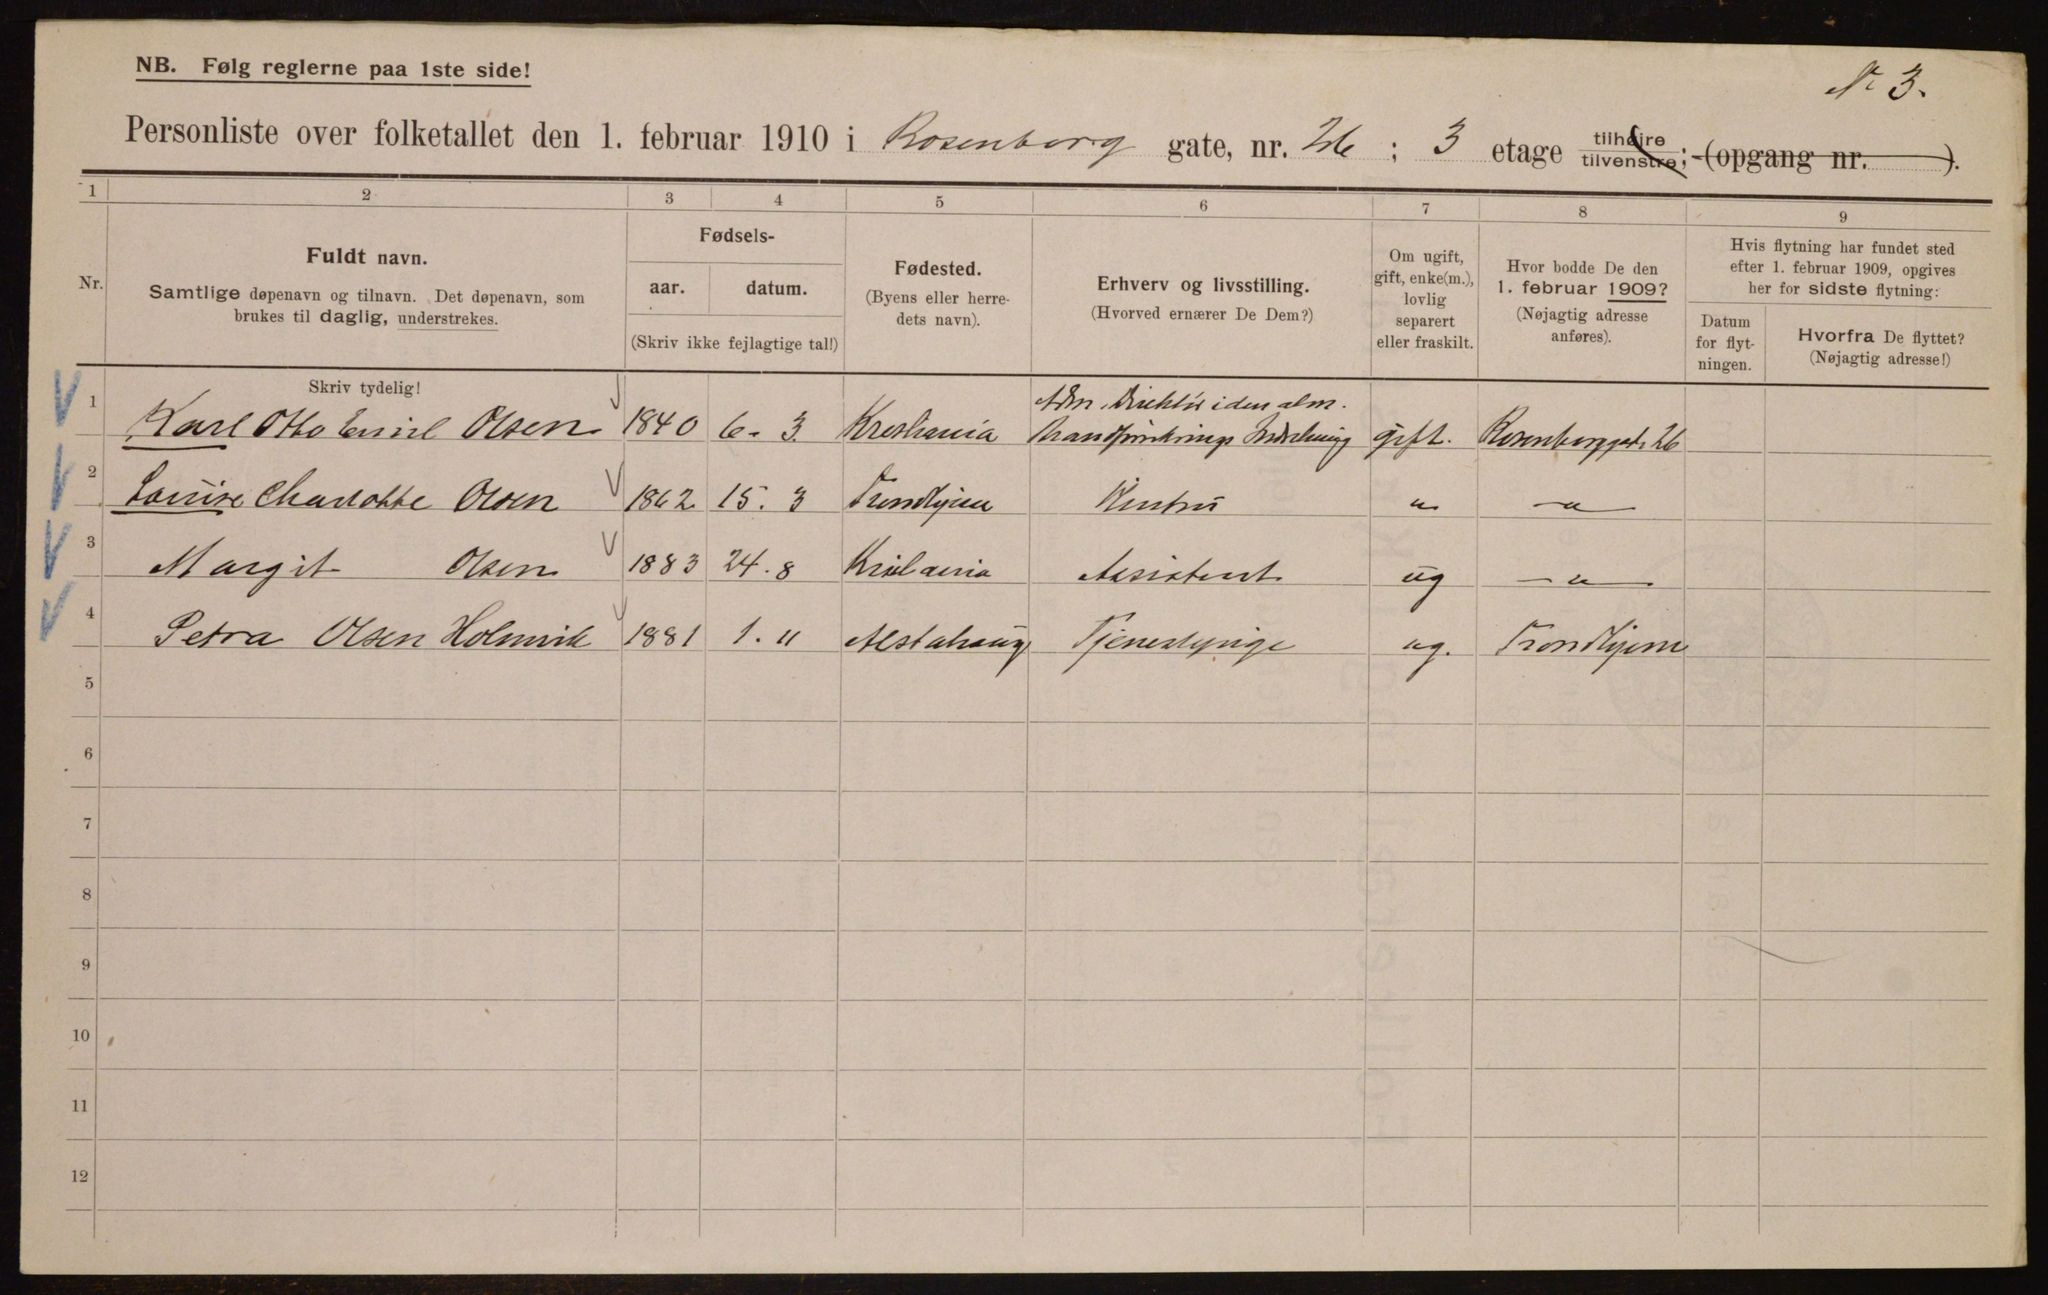 NB. Følg reglerne paa 1ste side!
Nr 3.
Personliste over folketallet den 1. februar 1910 i Rosenborg gate, nr. 26 ; 3 etage tilhøire tilvenstre; (opgang nr. ).
1 2 3 4 5 6 7 8 9
Nr.
Fuldt navn.
Samtlige døpenavn og tilnavn. Det døpenavn, som
brukes til daglig, understrekes.
Skriv tydelig!
Fødsels-
aar. datum.
(Skriv ikke fejlagtige tal!)
Fødested.
(Byens eller herre-
dets navn).
Erhverv og livsstilling.
(Hvorved ernærer De Dem?)
Om ugift,
gift, enke(m.),
lovlig
separert
eller fraskilt.
Hvor bodde De den
1. februar 1909?
(Nøjagtig adresse
anføres).
Hvis flytning har fundet sted
efter 1. februar 1909, opgives
her for sidste flytning:
Datum
for flyt-
ningen.
Hvorfra De flyttet?
(Nøjagtig adresse!)
Adm. Direktør i den alm.
1 Karl Otto Emil Olsen 1840 6-3 Kristiania Brandforsikrings Indretning gift. Rosenborggade 26
2 Louise Charlotte Olsen 1862 15. 3 Trondhjem Hustru " — " —
3 Margit Olsen 1883 24. 8 Kristiania Assistent ug — " —
4 Petra Olsen Holmvik 1881 1. 11 Alstahaug Tjenestepige ug. Trondhjem
5
6
7
8
9
10
11
12